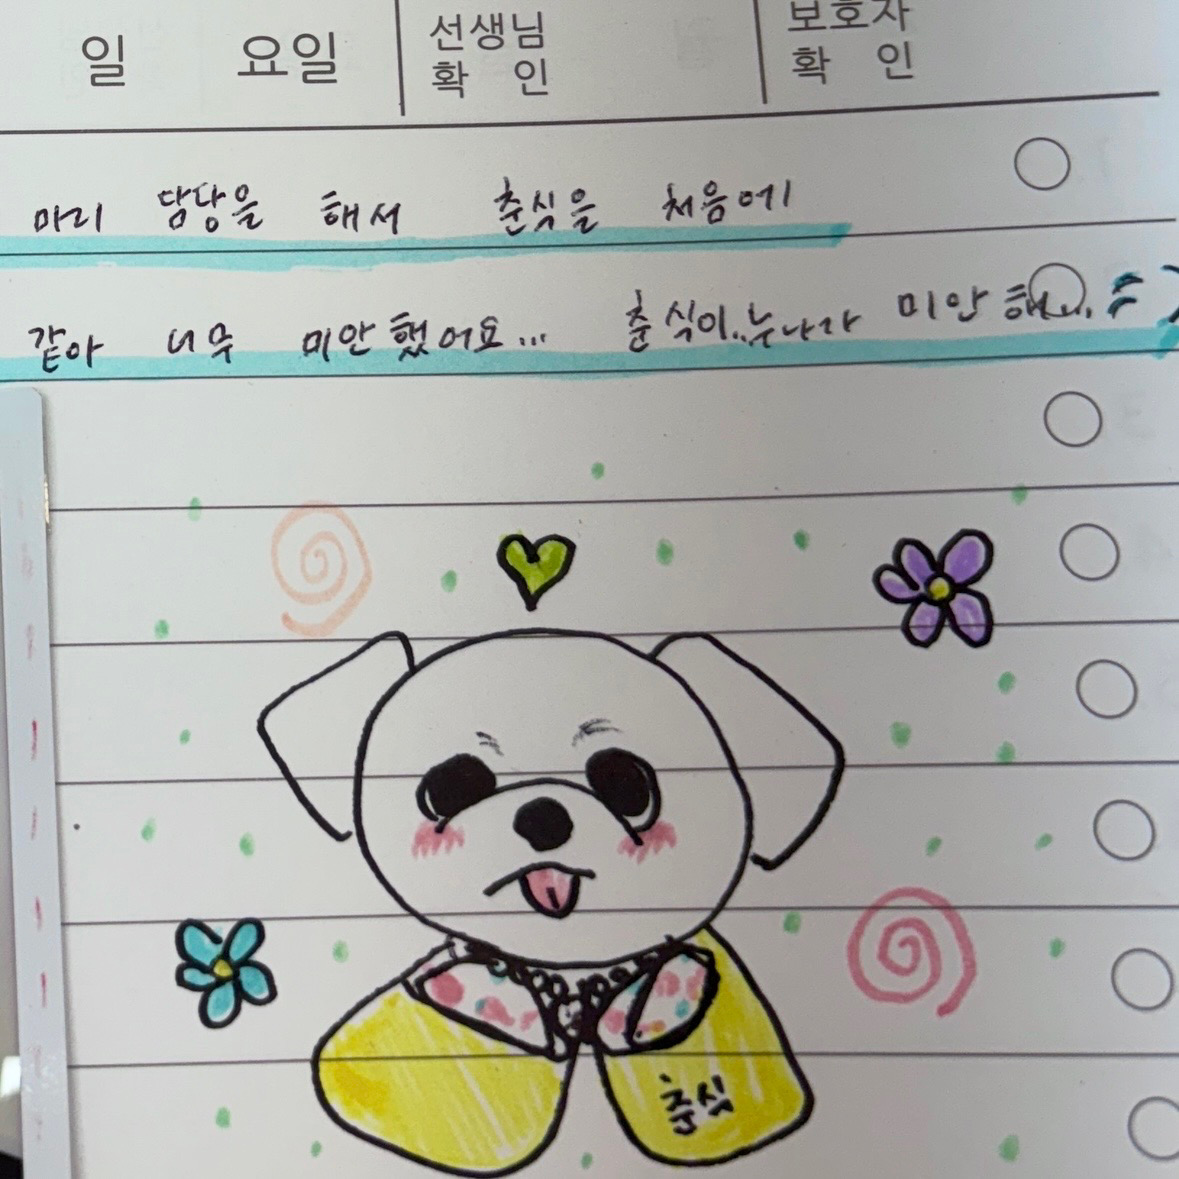 일 요일 선생님 확 인 보호자 확 인
마리 담당을 해서 춘식을 처음에
같아 너무 미안했어요... 춘식이..누나가 미안해요..
춘식